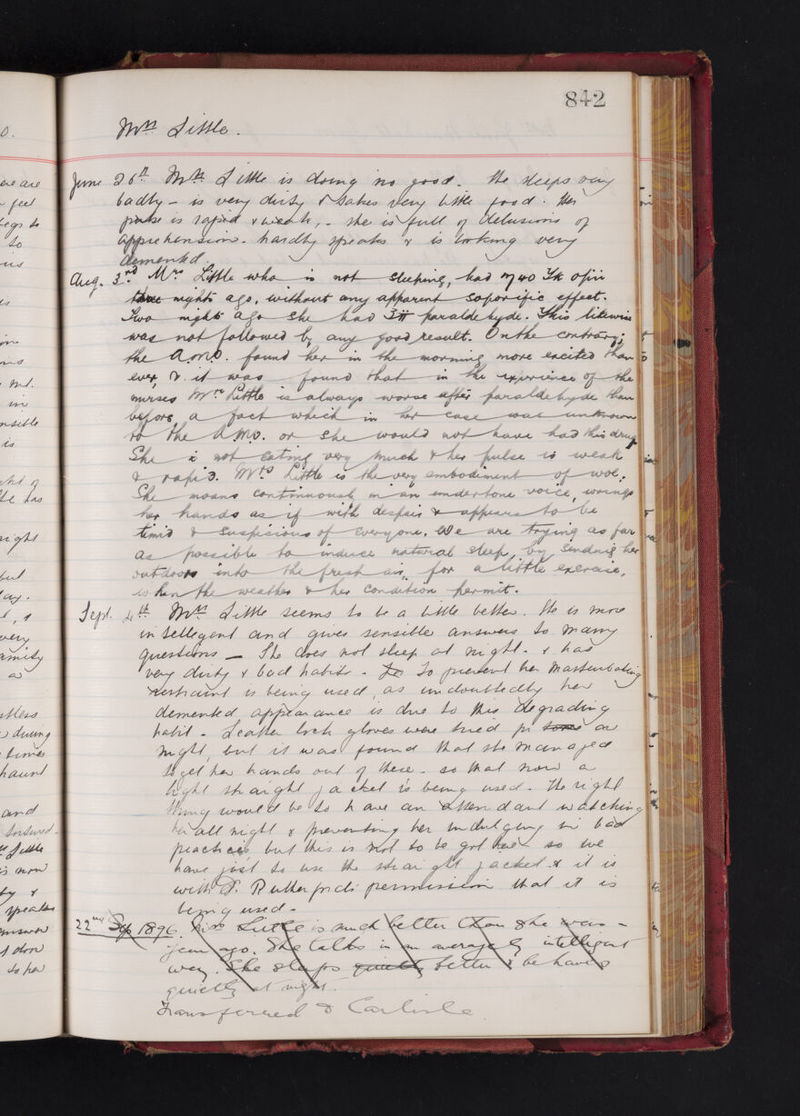 842
Mrs Little.
June 26th Mrs Little is doing no good. She sleeps very
badly – is very dirty & takes very little food. Her
pulse is rapid & weak, – she is full of delusions of
apprehension. hardly speaks & is looking very
demented.
Aug. 3rd Mrs Little who is not sleeping, had ♏40 Tr opii
three nights ago, without any apparent soporific effect.
Two nights ago she had ʒii paraldehyde. This likewise
was not followed by any good result. On the contrary;
the A.M.O. found her in the morning more excited than
ever, & it was found that in the experience of the
nurses Mrs Little is always worse after paraldehyde than
before, a fact which in her case was unknown
to the A.M.O. or she would not have had this drug.
She is not eating very much & her pulse is weak
& rapid. Mrs Little is the very embodiment of woe.
She moans continuously in an undertone voice, wrings
her hands as if with despair & appears to be
timid & suspicious of everyone. We are trying as far
as possible to induce natural sleep, by sending her
outdoors into the fresh air, for a little exercise,
when the weather & her condition permit.
Sept. 4th Mrs Little seems to be a little better. She is more
intellegent and gives sensible answers to many
questions – She does not sleep at night. & has
very dirty & bad habits. To prevent her masturbating
restraint is being used, as undoubtedly her
demented appearance is due to this degrading
habit – Leather lock gloves were tried for a
night, but it was found that she managed
to get her hands out of these – so that now a
light straight jacket is being used. The right
thing would be to have an attendant watching
her all night & preventing her indulging in bad
practices but this is not to be got here so we
have just to use the straight jacket & it is
with Dr. Rutherford's permission that it is
being used.
22nd Sep 1896. Mrs Little is much better than she was –
year ago. She talks in an averagely intelligent
way. She sleeps quietly better & behaves
quietly at night.
Transferred to Carlisle.